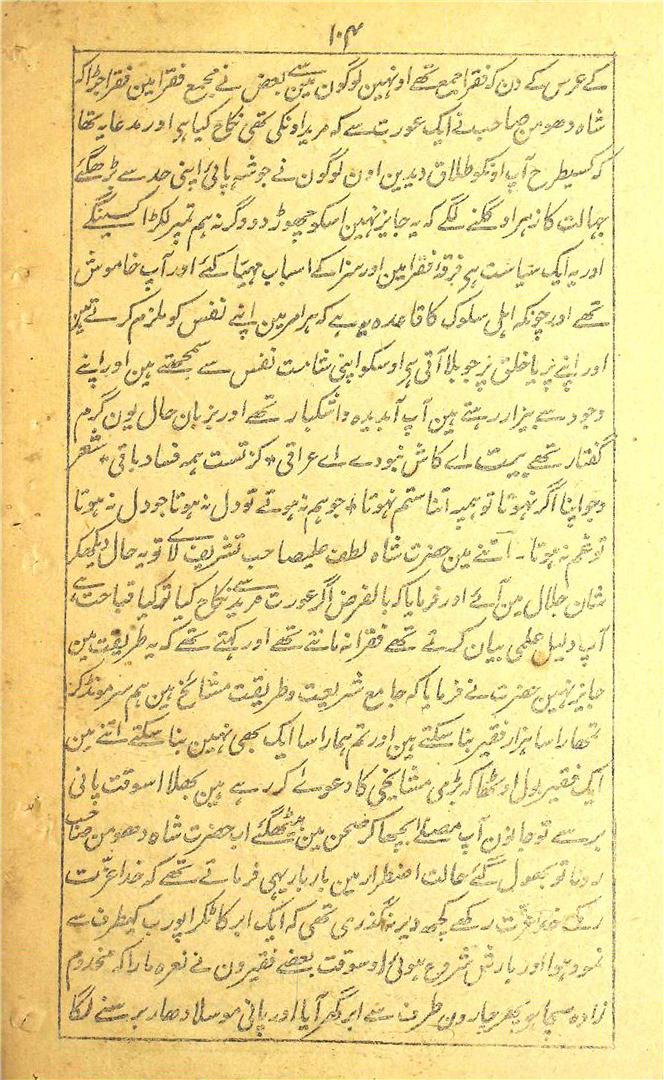 ۱۰۴
کے عرس کے دن کہ فقرا جمع تھے اونہین لوگون مین سے بعض نے مجمع فقرا مین فقرا جڑا کہ
شاہ دھومن صاحب نے ایک عورت سے کہ مرید اونکی تھی نکاح کیا ہی اور مدعا یہ تھا
کہ کسیطرح آپ اونکو طلاق دیدین اون لوگون نے جو شہ پائی اپنی حد سے بڑھ گئے
جہالت کا زہر اوگلنے لگے کہ یہ جایز نہین اسکو چھوڑ دو وگرنہ ہم تمپر لکڑا کسینگے
اور یہ ایک سیاست ہی فرقۂ فقرا مین اور سزا کے اسباب مہیا کئے اور آپ خاموش
تھے اور چونکہ اہل سلوک کا قاعدہ یہ ہے کہ ہر امر مین اپنے نفس کو ملزم کرتے ہین
اور اپنے پر یا خلق پر جو بلا آتی ہی اوسکو اپنی شامت نفس سے سمجھتے ہین اور اپنے
وجود سے بیزار رہتے ہین آپ آبدیدہ و اشکبار تھے اور بزبان حال یون گرم
گفتار تھے بیت اے کاش نبودے اے عراقی * کز تست ہمہ فساد باقی * شعر
وجود اپنا اگر نہوتا تو ہمپہ اتنا ستم نہوتا * جو ہم نہوتے تو دل نہ ہوتا جو دل نہ ہوتا
تو غم نہ ہوتا - اتنے مین حضرت شاہ لطف علیصاحب تشریف لاے تو یہ حال دیکھکر
شان جلال مین آئے اور فرمایا کہ بالفرض اگر عورت مریدہ سے نکاح کیا تو کیا قباحت ہے
آپ دلیل علمی بیان کرتے تھے فقرا نہ مانتے تھے اور کہتے تھے کہ یہ طریقت مین
جایز نہین حضرت نے فرمایا کہ جامع شریعت و طریقت مشائخ ہین ہم سر مونڈکر
تمھارا سا ہزار فقیر بنا سکتے ہین اور تم ہمارا سا ایک بھی نہین بنا سکتے اتنے مین
ایک فقیر بول اوٹھا کہ بڑی مشایخی کا دعوے کر رہے ہین بھلا اسوقت پانی
برسے تو جانون آپ مصلّے بچھا کر صحن مین بیٹھ گئے اب حضرت شاہ دھومن صاحب
رونا تو بھول گئے حالت اضطرار مین بار بار یہی فرماتے تھے کہ خدا عزّت
رکھے خدا عزّت رکھے کچھ دیر نگذری تھی کہ ایک ابر کا ٹکرا پورب کیطرف سے
نمود ہوا اور بارش شروع ہوئی اوسوقت بعضے فقیرون نے نعرہ مارا کہ مخدوم
زادہ سچا ہو پھر چارون طرف سے ابر گھر آیا اور پانی موسلا دھار برسنے لگا